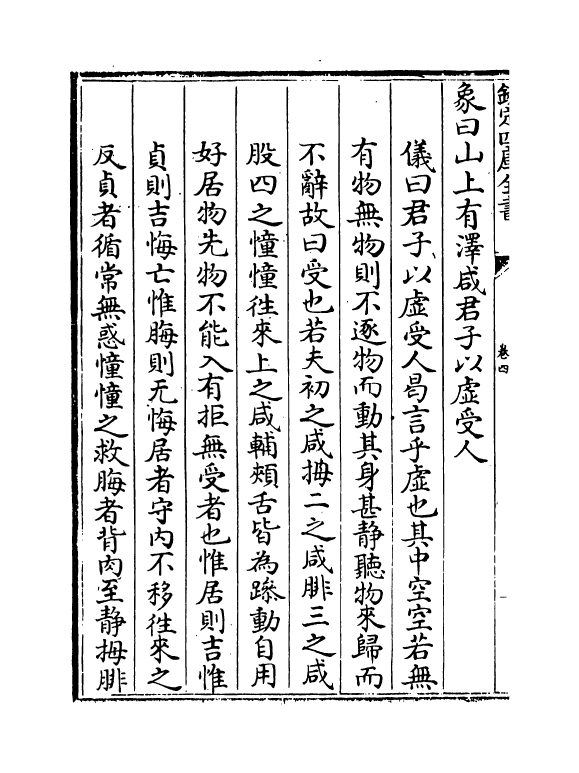 欽定四庫全書
卷四
象曰山上有澤咸君子以虛受人
儀曰君子以虛受人曷言乎虛也其中空空若無
有物無物則不逐物而動其身甚静聽物來歸而
不辭故曰受也若夫初之咸拇二之咸腓三之咸
股四之憧憧徃來上之咸輔頰舌皆為躁動自用
好居物先物不能入有拒無受者也惟居則吉惟
貞則吉悔亡惟脢則无悔居者守内不移徃來之
反貞者循常無惑憧憧之救脢者背肉至静拇腓